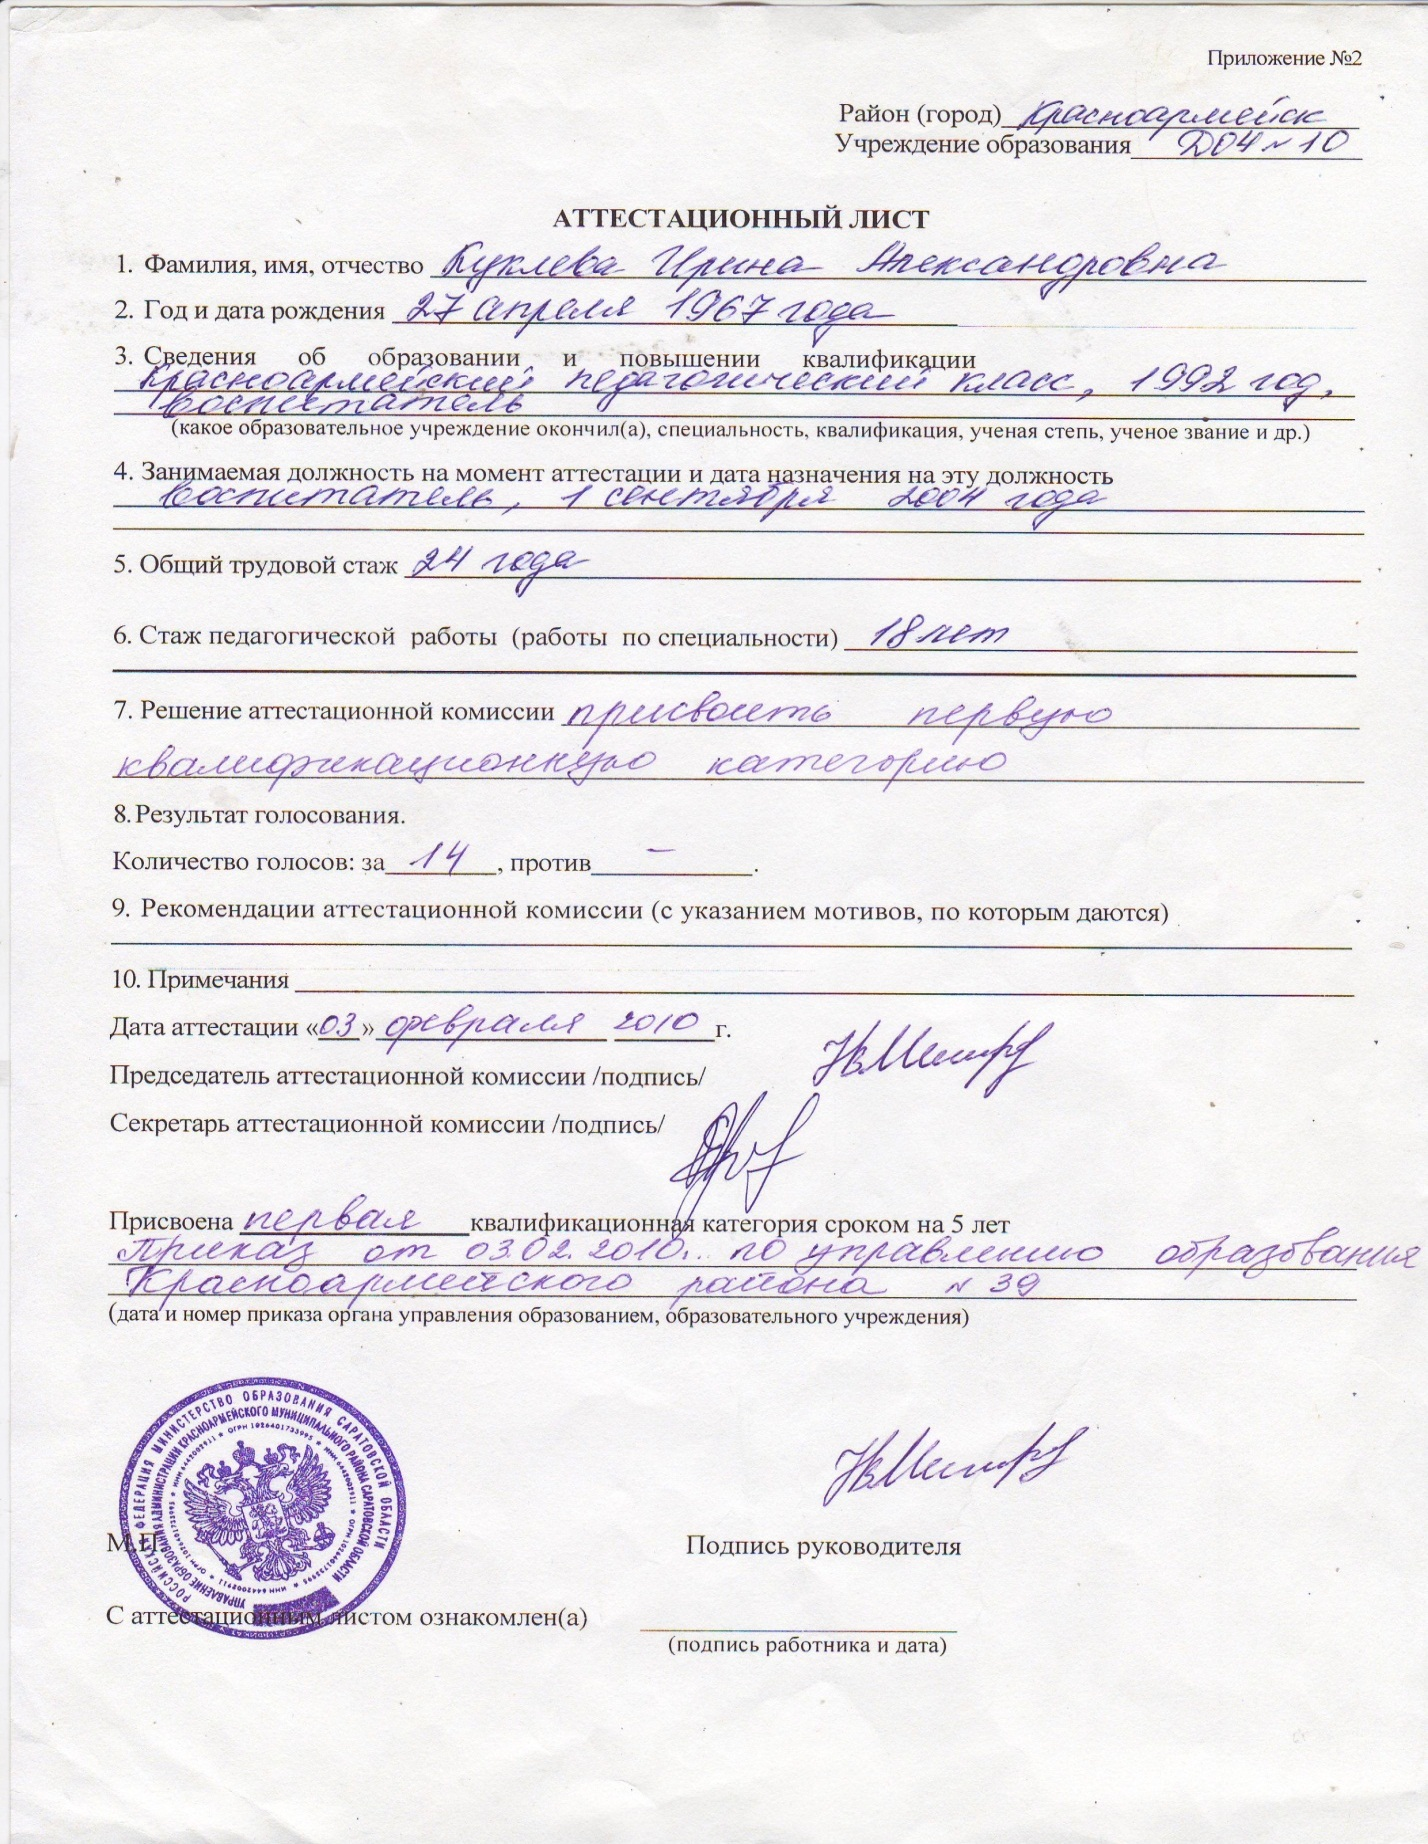 Приложение №2
Район (город) Красноармейск
Учреждение образования ДОУ №10
АТТЕСТАЦИОННЫЙ ЛИСТ
1. Фамилия, имя, отчество Куклева Ирина Александровна
2. Год и дата рождения 27 апреля 1967 года
3. Сведения об образовании и повышении квалификации
Красноармейский педагогический класс, 1992 год,
воспитатель
(какое образовательное учреждение окончил(а), специальность, квалификация, ученая степень, ученое звание и др.)
4. Занимаемая должность на момент аттестации и дата назначения на эту должность
воспитатель, 1 сентября 2004 года
5. Общий трудовой стаж 24 года
6. Стаж педагогической работы (работы по специальности) 18 лет
7. Решение аттестационной комиссии присвоить первую
квалификационную категорию
8. Результат голосования.
Количество голосов: за 14, против –.
9. Рекомендации аттестационной комиссии (с указанием мотивов, по которым даются)
10. Примечания
Дата аттестации «03» февраля 2010 г.
Председатель аттестационной комиссии /подпись/
Секретарь аттестационной комиссии /подпись/
Присвоена первая квалификационная категория сроком на 5 лет
Приказ от 03.02.2010г. по управлению образования
Красноармейского района №39
(дата и номер приказа органа управления образованием, образовательного учреждения)
РОССИЙСКАЯ ФЕДЕРАЦИЯ МИНИСТЕРСТВО ОБРАЗОВАНИЯ САРАТОВСКОЙ ОБЛАСТИ
УПРАВЛЕНИЕ ОБРАЗОВАНИЯ АДМИНИСТРАЦИИ КРАСНОАРМЕЙСКОГО МУНИЦИПАЛЬНОГО РАЙОНА САРАТОВСКОЙ ОБЛАСТИ
ОГРН 1026401733995 * ИНН 6442002911
М.П.
Подпись руководителя
С аттестационным листом ознакомлен(а)
(подпись работника и дата)